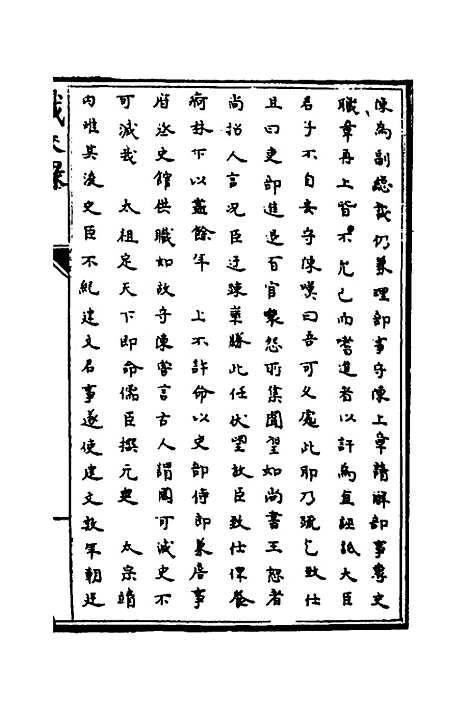 陳為副總裁仍兼理部事守陳上章請解部事專史
職章再上皆不允已而嗜進者以訐為直經詆大臣
君子不自安守陳嘆曰吾可久處此耶乃疏乞致仕
且曰吏部進退百官衆怨所集聞望如尚書王恕者
尚招人言况臣迂疎葉勝此任伏望放臣致仕保養
府林下以盡餘年 上不許命以吏部侍郎兼詹事
府丞史館供職如故守陳嘗言古人謂國可滅史不
可滅我 太祖定天下即命儒臣撰元史 太宗靖
内难其後史臣不紀建文君事遂使建文數年朝廷